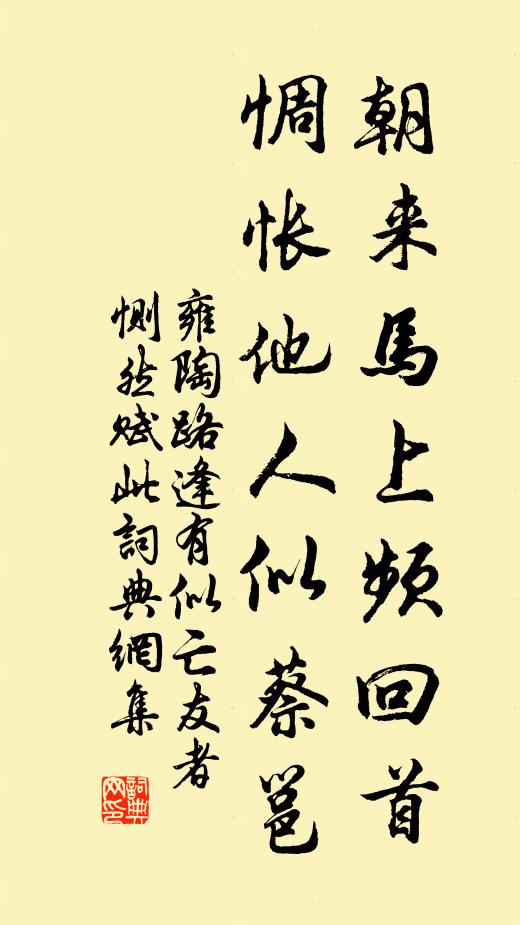 朝来馬上频回首
惆怅他人似蔡邕
雍陶路逢有似亡友者
惻然赋此詞典網集
詞典网印